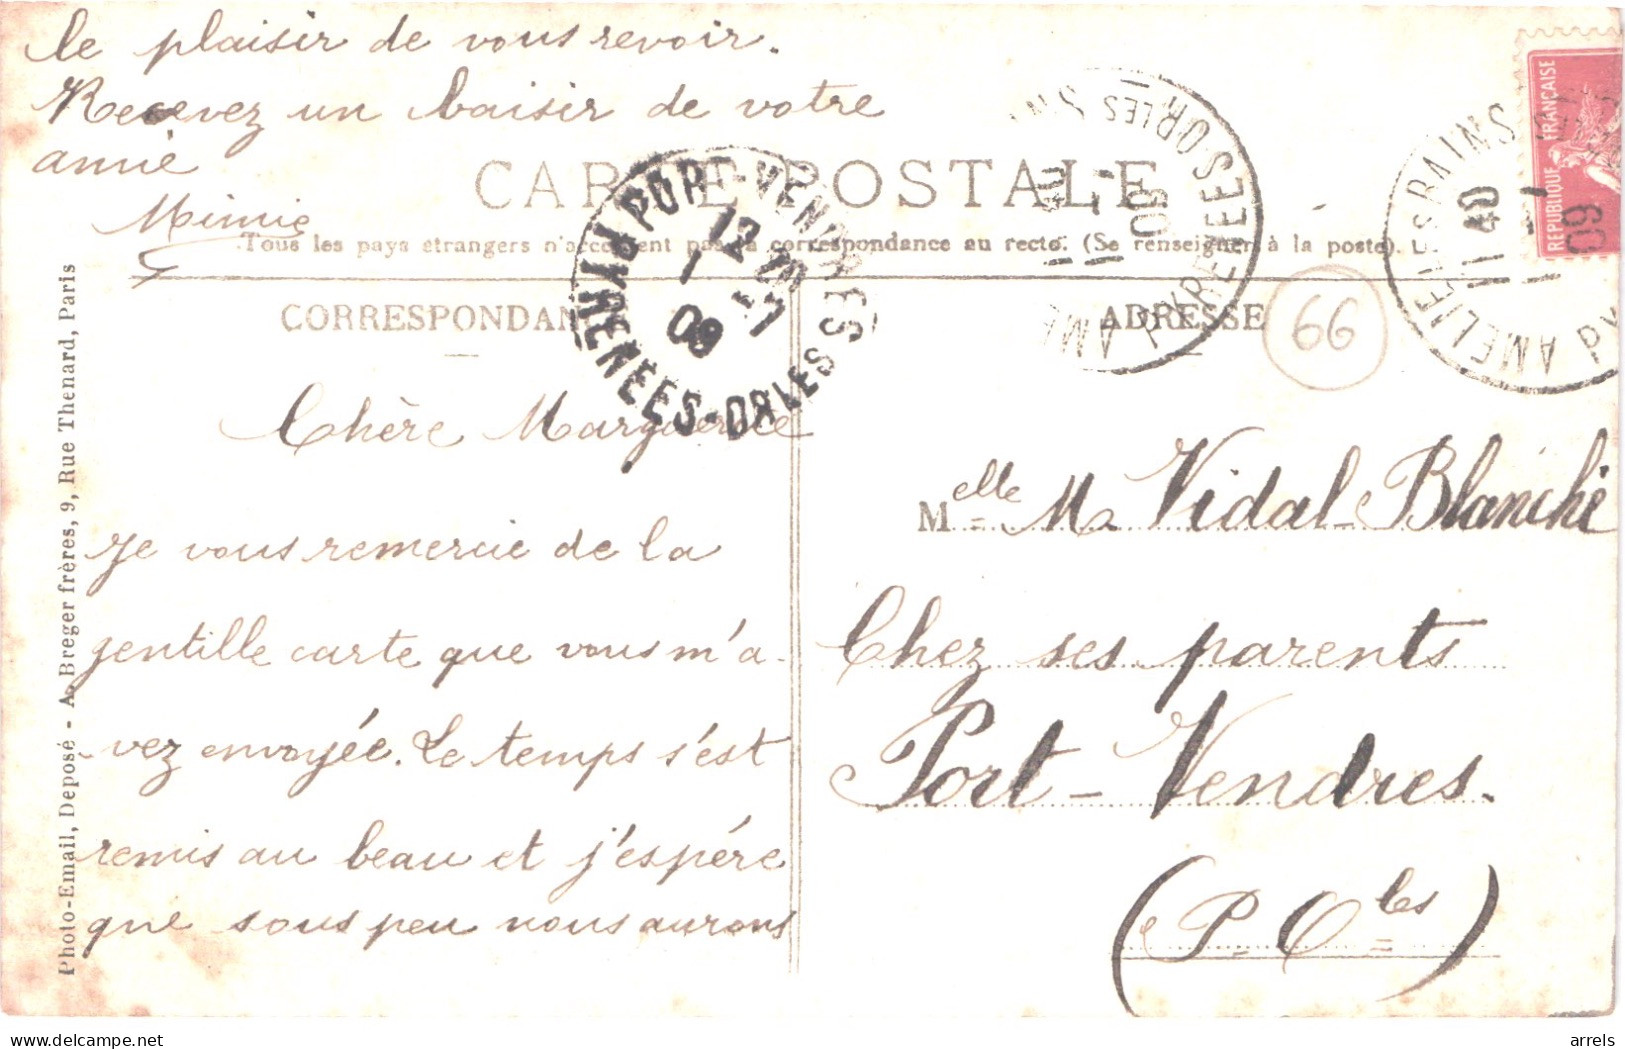 le plaisir de vous revoir.
Recevez un baisir de votre
amie
Mimie
CARTE POSTALE
Tous les pays étrangers n'acceptent pas la correspondance au recto. (Se renseigner à la poste).
CORRESPONDANCE
Chère Marguerite
Je vous remercie de la
gentille carte que vous m'a-
vez envoyée. Le temps s'est
remis au beau et j'espére
que sous peu nous aurons
ADRESSE
66
Melle M. Vidal-Blanche
Chez ses parents
Port-Vendres.
(P. Oles)
Photo-Email, Deposé - A. Breger frères, 9, Rue Thenard, Paris
PORT-VENDRES
12 10
1 -7
09
PYRENEES-ORLES
AMELIE LES BAINS
11 40
09
REPUBLIQUE FRANÇAISE
PYRENEES ORLES
09
arrels